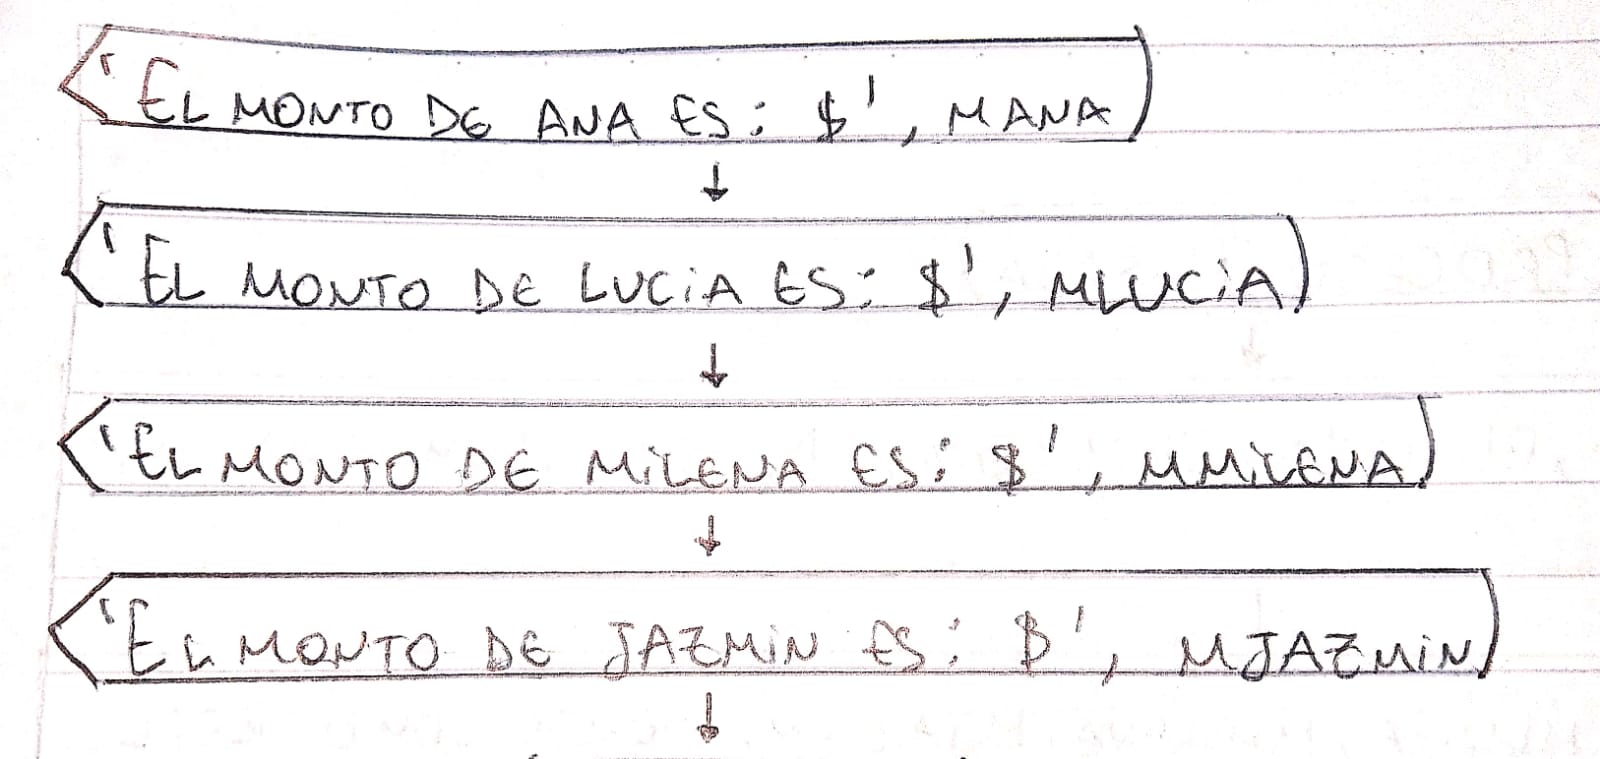 'EL MONTO DE ANA ES: $', MANA
'EL MONTO DE LUCIA ES: $', MLUCIA
'EL MONTO DE MILENA ES: $', MMILENA
'EL MONTO DE JAZMIN ES: $', MJAZMIN